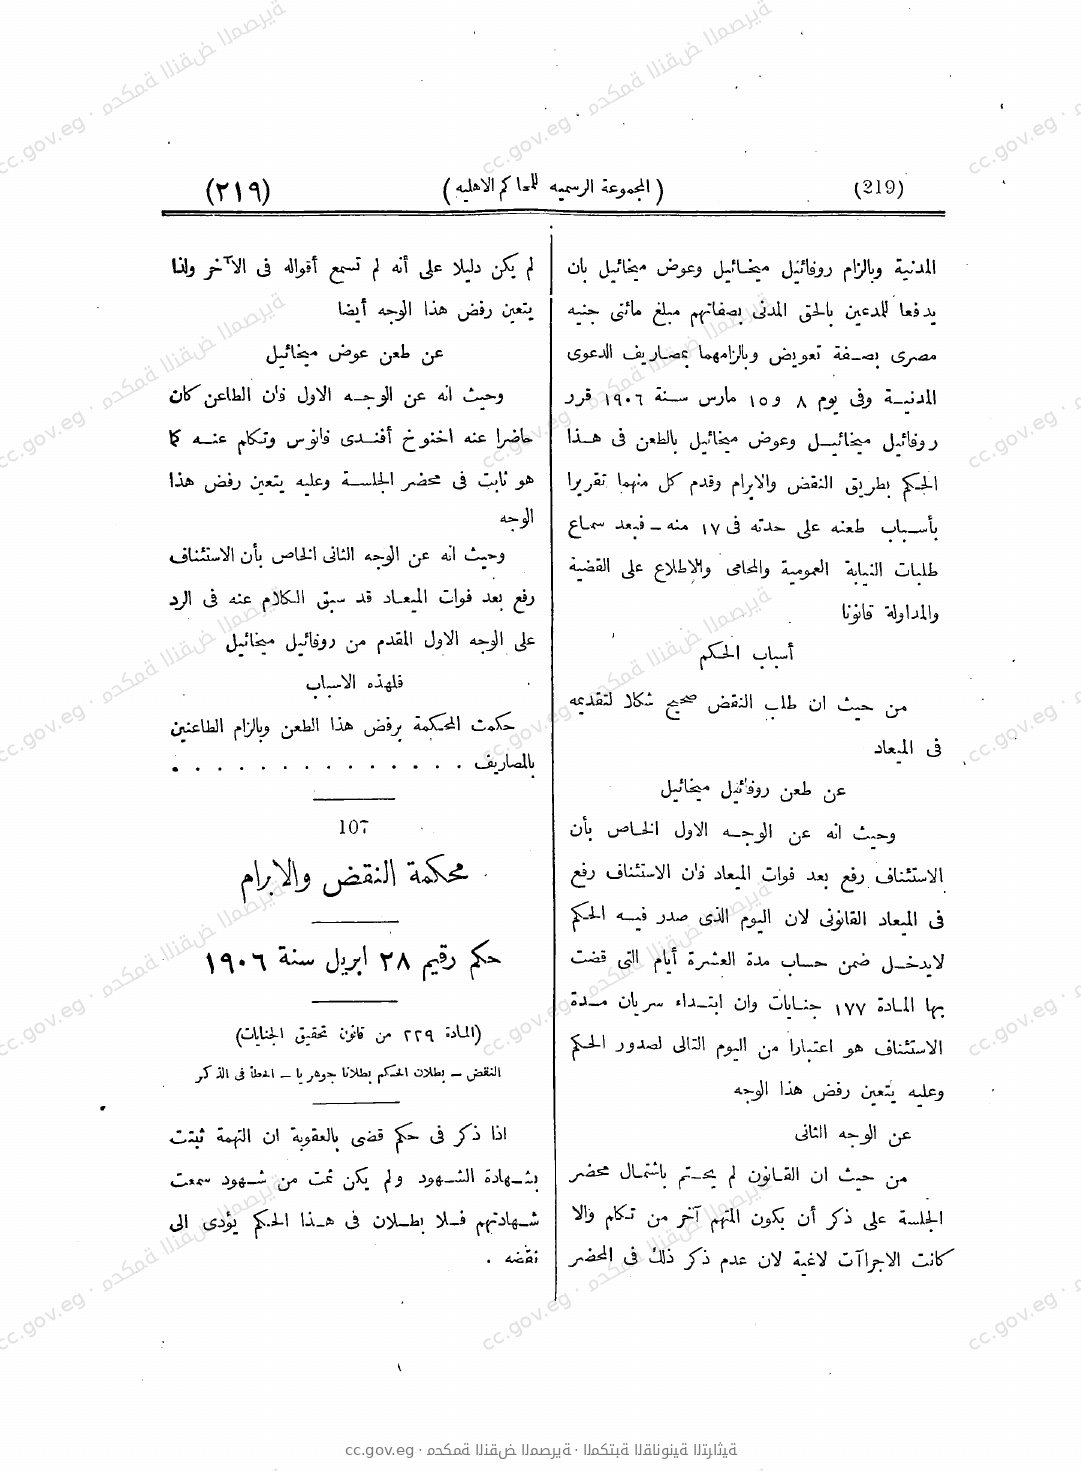 (219) (المجموعة الرسميه للمحاكم الاهليه) (٢١٩)
المدنية وبالزام روفائيل ميخائيل وعوض ميخائيل بان
يدفعا للمدعين بالحق المدنى بصفاتهم مبلغ مائتى جنيه
مصرى بصفة تعويض وبالزامهما بمصاريف الدعوى
المدنية وفى يوم ٨ و١٥ مارس سنة ١٩٠٦ قرر
روفائيل ميخائيل وعوض ميخائيل بالطعن فى هذا
الحكم بطريق النقض والابرام وقدم كل منهما تقريرا
بأسباب طعنه على حدته فى ١٧ منه ـ فبعد سماع
طلبات النيابة العمومية والمحامى والاطلاع على القضية
والمداولة قانونا
أسباب الحكم
من حيث ان طلب النقض صحيح شكلا لتقديمه
فى الميعاد
عن طعن روفائيل ميخائيل
وحيث انه عن الوجه الاول الخاص بأن
الاستئناف رفع بعد فوات الميعاد فان الاستئناف رفع
فى الميعاد القانونى لان اليوم الذى صدر فيه الحكم
لايدخل ضمن حساب مدة العشرة أيام التى قضت
بها المادة ١٧٧ جنايات وان ابتداء سريان مدة
الاستئناف هو اعتبارا من اليوم التالى لصدور الحكم
وعليه يتعين رفض هذا الوجه
عن الوجه الثانى
من حيث ان القانون لم يحتم باشتمال محضر
الجلسة على ذكر أن يكون المتهم آخر من تكلم والا
كانت الاجراآت لاغية لان عدم ذكر ذلك فى المحضر
لم يكن دليلا على أنه لم تسمع أقواله فى الآخر ولذا
يتعين رفض هذا الوجه أيضا
عن طعن عوض ميخائيل
وحيث انه عن الوجه الاول فان الطاعن كان
حاضرا عنه اخنوخ أفندى فانوس وتكلم عنه كما
هو ثابت فى محضر الجلسة وعليه يتعين رفض هذا
الوجه
وحيث انه عن الوجه الثانى الخاص بأن الاستئناف
رفع بعد فوات الميعاد قد سبق الكلام عنه فى الرد
على الوجه الاول المقدم من روفائيل ميخائيل
فلهذه الاسباب
حكمت المحكمة برفض هذا الطعن وبالزام الطاعنين
بالمصاريف . . . . . . . . . . . . . .
107
محكمة النقض والابرام
حكم رقيم ٢٨ ابريل سنة ١٩٠٦
(المادة ٢٢٩ من قانون تحقيق الجنايات)
النقض ـ بطلان الحكم بطلانا جوهريا ـ الخطأ فى الذكر
اذا ذكر فى حكم قضى بالعقوبة ان التهمة ثبتت
بشهادة الشهود ولم يكن ثمت من شهود سمعت
شهادتهم فلا بطلان فى هذا الحكم يؤدى الى
نقضه .
cc.gov.eg · محكمة النقض المصرية · المكتبة القانونية التراثية